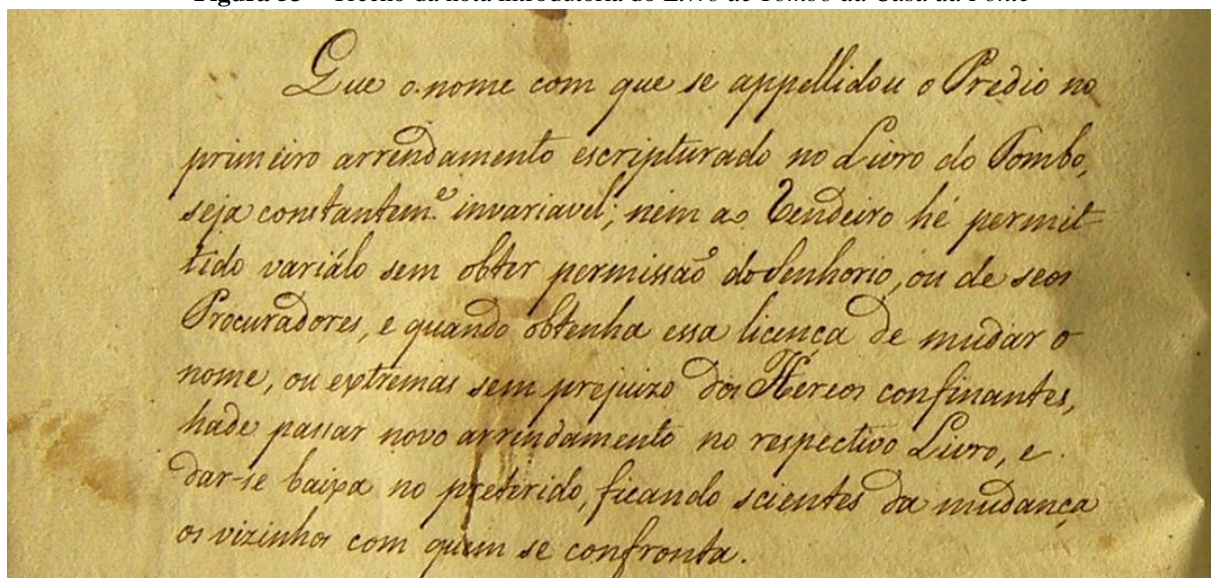 Figura 33 – Trecho da nota introdutória do Livro de Tombo da Casa da Ponte
Que o nome com que se appellidou o Predio no
primeiro arrendamento escripturado no Livro do Tombo,
seja constantem.e invariavel; nem ao Rendeiro hé permit-
tido variálo sem obter permissaõ do Senhorio, ou de seos
Procuradores, e quando obtenha essa licença de mudar o
nome, ou extremas sem prejuizo dos Hereos confinantes,
hade passar novo arrendamento no respectivo Livro, e
dar-se baixa no preterido, ficando scientes da mudança
os vizinhos com quem se confronta.